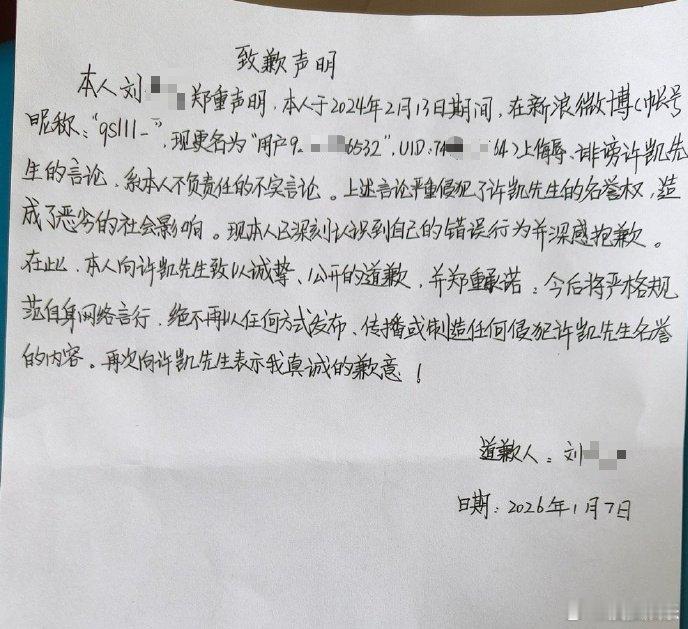 致歉声明
本人刘郑重声明,本人于2024年2月13日期间,在新浪微博(帐号
昵称:"qslll_",现更名为"用户9 6532",UID:74 64)上侮辱、诽谤许凯先
生的言论,系本人不负责任的不实言论。上述言论严重侵犯了许凯先生的名誉权,造
成了恶劣的社会影响。现本人已深刻认识到自己的错误行为并深感抱歉。
在此,本人向许凯先生致以诚挚、公开的道歉,并郑重承诺:今后将严格规
范自身网络言行,绝不再以任何方式发布、传播或制造任何侵犯许凯先生名誉
的内容。再次向许凯先生表示我真诚的歉意!
道歉人:刘
日期:2026年1月7日